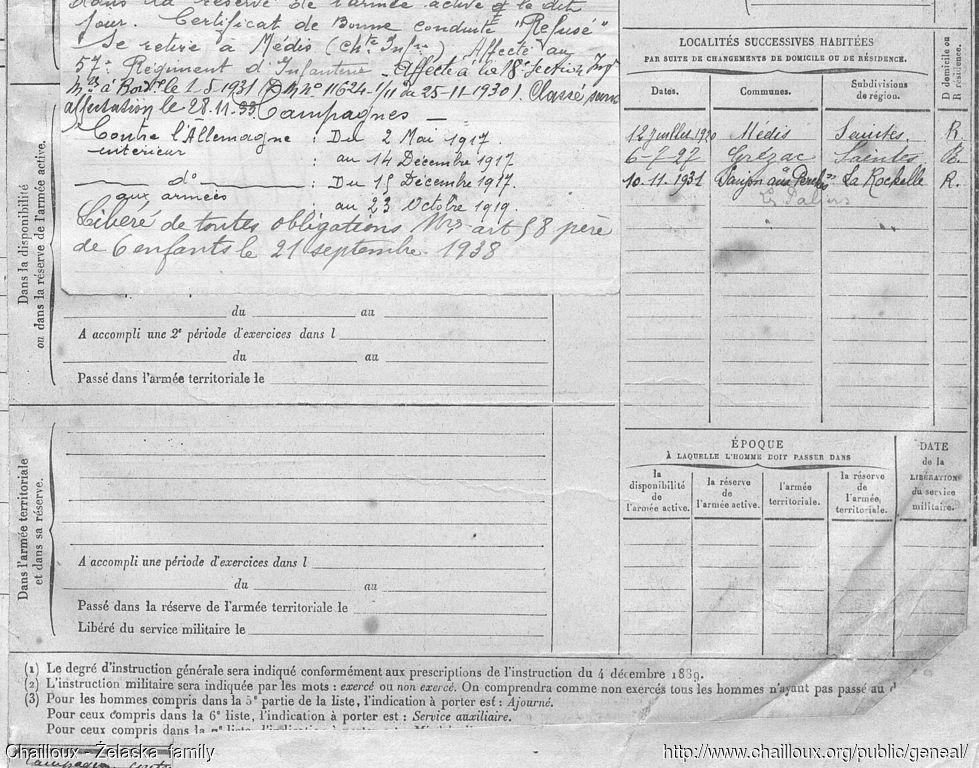 dans la réserve de l'armée active le dit
jour. Certificat de Bonne conduite "Refusé"
Se retire à Médis (Chte Infre). Affecté au
57e Régiment d'Infanterie - Affecté à la 18e Section
le 1-5-1931 (D.M. n° 11624-1/11 du 25-11-1930). Classé sans
affectation le 28.11.33. Campagnes -
Contre l'Allemagne : Du 2 Mai 1917.
intérieur : au 14 Décembre 1917
d° : Du 15 Décembre 1917.
aux armées : au 23 Octobre 1919
Libéré de toutes obligations art 58 père
de 6 enfants le 21 septembre 1938
Dans la disponibilité
ou dans la réserve de l'armée active.
du au
A accompli une 2e période d'exercices dans l
du au
Passé dans l'armée territoriale le
Dans l'armée territoriale
et dans sa réserve.
A accompli une période d'exercices dans l
du au
Passé dans la réserve de l'armée territoriale le
Libéré du service militaire le
LOCALITÉS SUCCESSIVES HABITÉES
PAR SUITE DE CHANGEMENTS DE DOMICILE OU DE RÉSIDENCE.
D domicile ou
R résidence.
Dates. Communes. Subdivisions
de région.
12 Juillet 1920 Médis Saintes R.
6-7-27 Grézac Saintes R.
10-11-1931 Saujon La Rochelle R.
ÉPOQUE
À LAQUELLE L'HOMME DOIT PASSER DANS
la
disponibilité
de
l'armée active.
la réserve
de
l'armée active.
l'armée
territoriale.
la réserve
de
l'armée
territoriale.
DATE
de la
LIBÉRATION
du service
militaire.
(1) Le degré d'instruction générale sera indiqué conformément aux prescriptions de l'instruction du 4 décembre 1889.
(2) L'instruction militaire sera indiquée par les mots : exercé ou non exercé. On comprendra comme non exercés tous les hommes n'ayant pas passé au d
(3) Pour les hommes compris dans la 5e partie de la liste, l'indication à porter est : Ajourné.
Pour ceux compris dans la 6e liste, l'indication à porter est : Service auxiliaire.
Pour ceux compris dans la
Chailloux - Żelaska family
http://www.chailloux.org/public/geneal/